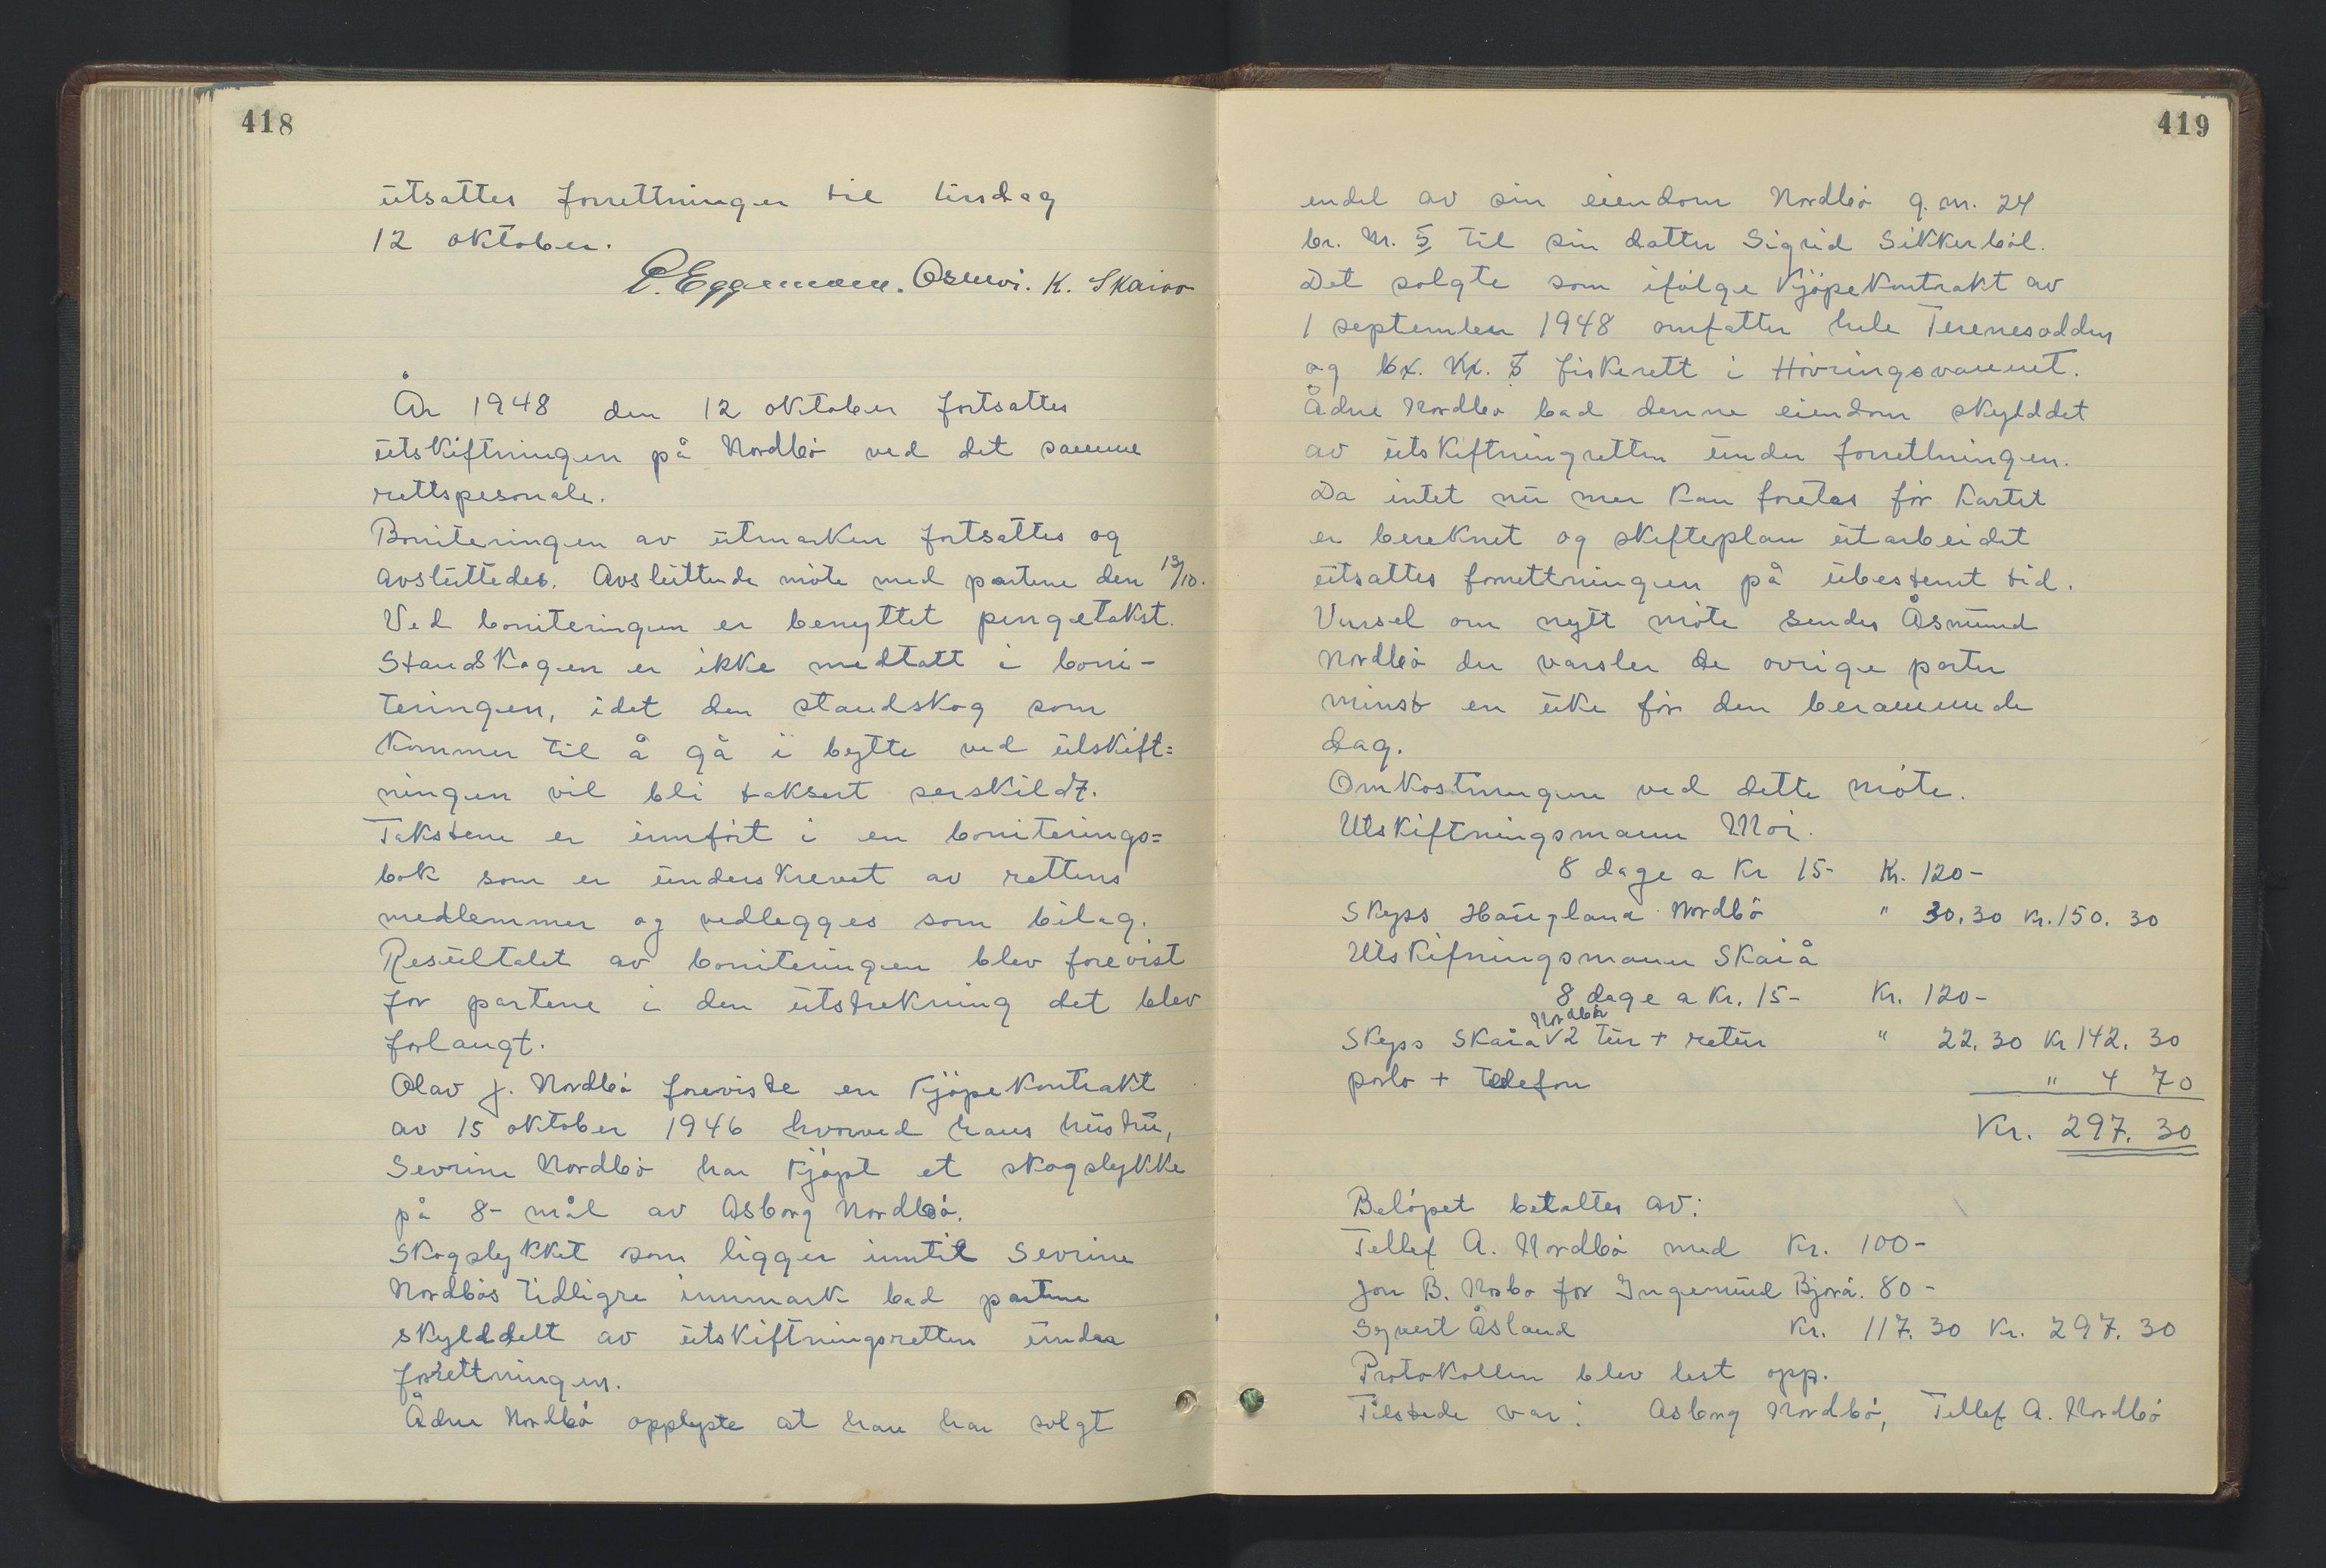 418
utsattes forrettningen til tirsdag
12 oktober.
P. Eggemoen. Os. Moi. K. Skaiaa
År 1948 den 12 oktober fortsattes
utskiftningen på Nordbö ved det samme
rettspesonale.
Boniteringen av utmarken fortsattes og
avsluttedes. Avsluttende möte med partene den 13/10.
Ved boniteringen er benyttet pengetakst.
Standskogen er ikke medtatt i boni-
teringen, idet den standskog som
kommer til å gå i bytte ved utskift=
ningen vil bli taksert serskildt.
Takstene er innfört i en boniterings=
bok som er underskrevet av rettens
medlemmer og vedlegges som bilag.
Resultatet av boniteringen blev forevist
for partene i den utstrekning det blev
forlangt.
Olav J. Nordbö foreviste en kjöpekontrakt
av 15 oktober 1946 hvorved hans hustru,
Sevrine Nordbö har kjöpt et skogstykke
på 8- mål av Asborg Nordbö.
Skogstykket som ligger inntil Sevrine
Nordbös tidligre innmark bad partene
skylddelt av utskiftningsretten under
forrettningen.
Ådne Nordbö opplyste at han har solgt
419
endel av sin eiendom Nordbö g.nr. 24
br. nr. 5 til sin datter Sigrid Sikkerböl.
Det solgte som ifölge kjöpekontrakt av
1 september 1948 omfatter hele Terenesodden
og br. nr. 5 fiskerett i Hövringsvannet.
Ådne Nordbö bad denne eiendom skylddet
av utskiftningretten under forrettningen.
Da intet nu mer kan foretas för kartet
er bereknet og skifteplan utarbeidet
utsattes forrettningen på ubestemt tid.
Varsel om nytt möte sendes Åsmund
Nordbö der varsler de övrige parter
minst en uke för den berammede
dag.
Omkostningene ved dette möte.
Utskiftningsmann Moi.
8 dage a Kr 15- Kr. 120-
Skyss Haugland Nordbö " 30.30 Kr. 150. 30
Utskifningsmann Skaiå
8 dage a Kr. 15- Kr. 120-
Skyss Skaia Nordbö 2 tur + retur " 22. 30 Kr 142. 30
porto + telefon " 4 70
Kr. 297. 30
Belöpet betaltes av:
Tellef A. Nordbö med Kr. 100-
Jon B. Nosbo for Ingemund Bjorå. 80-
Syvert Åsland Kr. 117.30 Kr. 297. 30
Protokollen blev lest opp.
Tilstede var: Asborg Nordbö, Tellef A. Nordbö